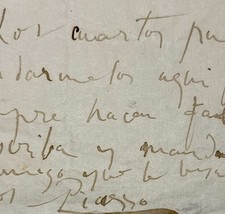 Los cuartos pu
darmelos aqui
pre hacen fal
scriba y mand
migo que le besa
os Picasso